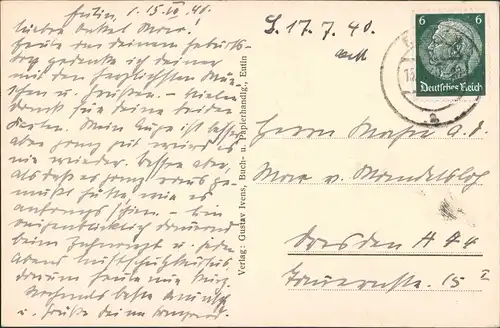 Eutin, d. 15. VII. 40.
Lieber Onkel Max!
Heute an deinem Geburts-
tag gedenke ich deiner
mit den herzlichsten Wün-
schen u. Grüßen. – Vielen
Dank für deine beiden
Karten. Mein Auge ist besser
aber ganz gut wird es
nie wieder. Besser aber,
als daß es ganz raus ge-
mußt hätte wie es
anfangs schien. – Bin
augenblicklich dauernd
beim Zahnarzt u. jeden
Abend Luftschutzdienst
darum heute nur kurz.
Nochmals beste Wünsche
u. Grüße deine
Verlag: Gustav Ivens, Buch- u. Papierhandlg., Eutin
17. 7. 40.
6 6
Deutsches Reich
a
Herrn Major a. D.
Max v. Wandelsloh
Dresden A 44
15 I